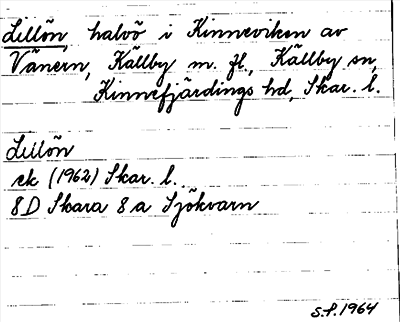 Lillön, halvö i Kinneviken av
Vänern, Källby m. fl., Källby sn,
Kinnefjärdings hd, Skar. l.
Lillön
ek (1962) Skar. l.
8D Skara 8a Sjökvarn
S.P. 1964